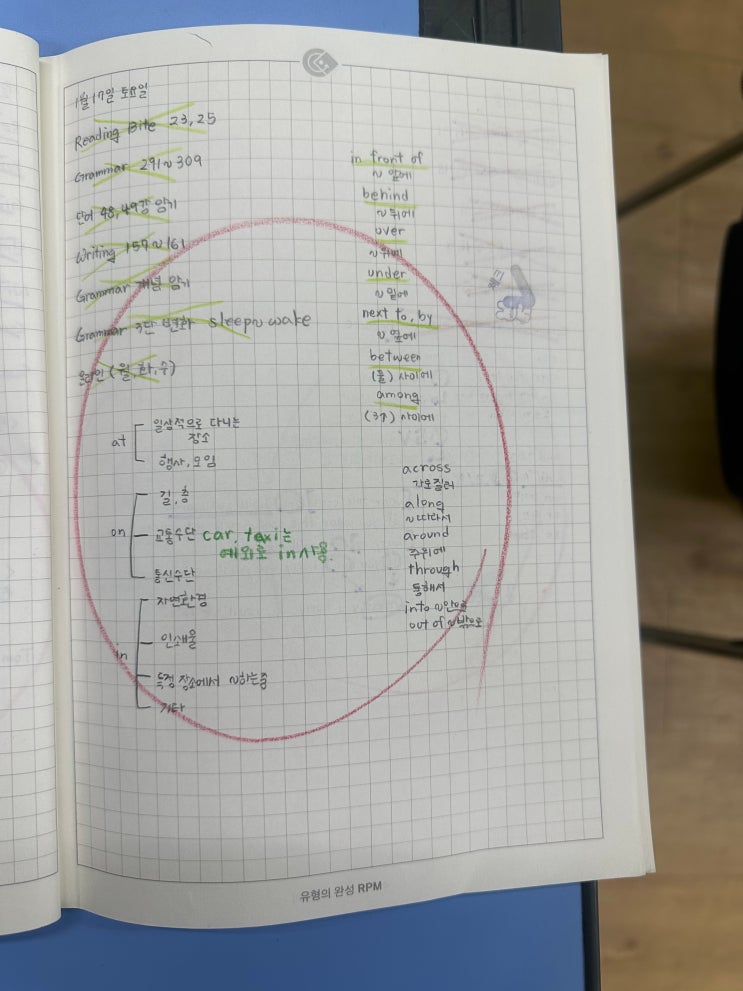 1월 17일 토요일
Reading Bite 23, 25
Grammar 291~309
단어 48, 49강 암기
Writing 157~161
Grammar 개념 암기
Grammar 3단 변화 sleep~wake
온라인 (월, 화, 수)
at
일상적으로 다니는
장소
행사, 모임
on
길, 층
교통수단 car, taxi는
예외로 in사용.
통신수단
in
자연환경
인쇄물
특정 장소에서 ~하는중
기타
in front of
~ 앞에
behind
~ 뒤에
over
~ 위에
under
~ 밑에
next to, by
~ 옆에
between
(둘) 사이에
among
(3↑) 사이에
across
가로질러
along
~따라서
around
주위에
through
통해서
into ~안으로
out of ~밖으로
유형의 완성 RPM